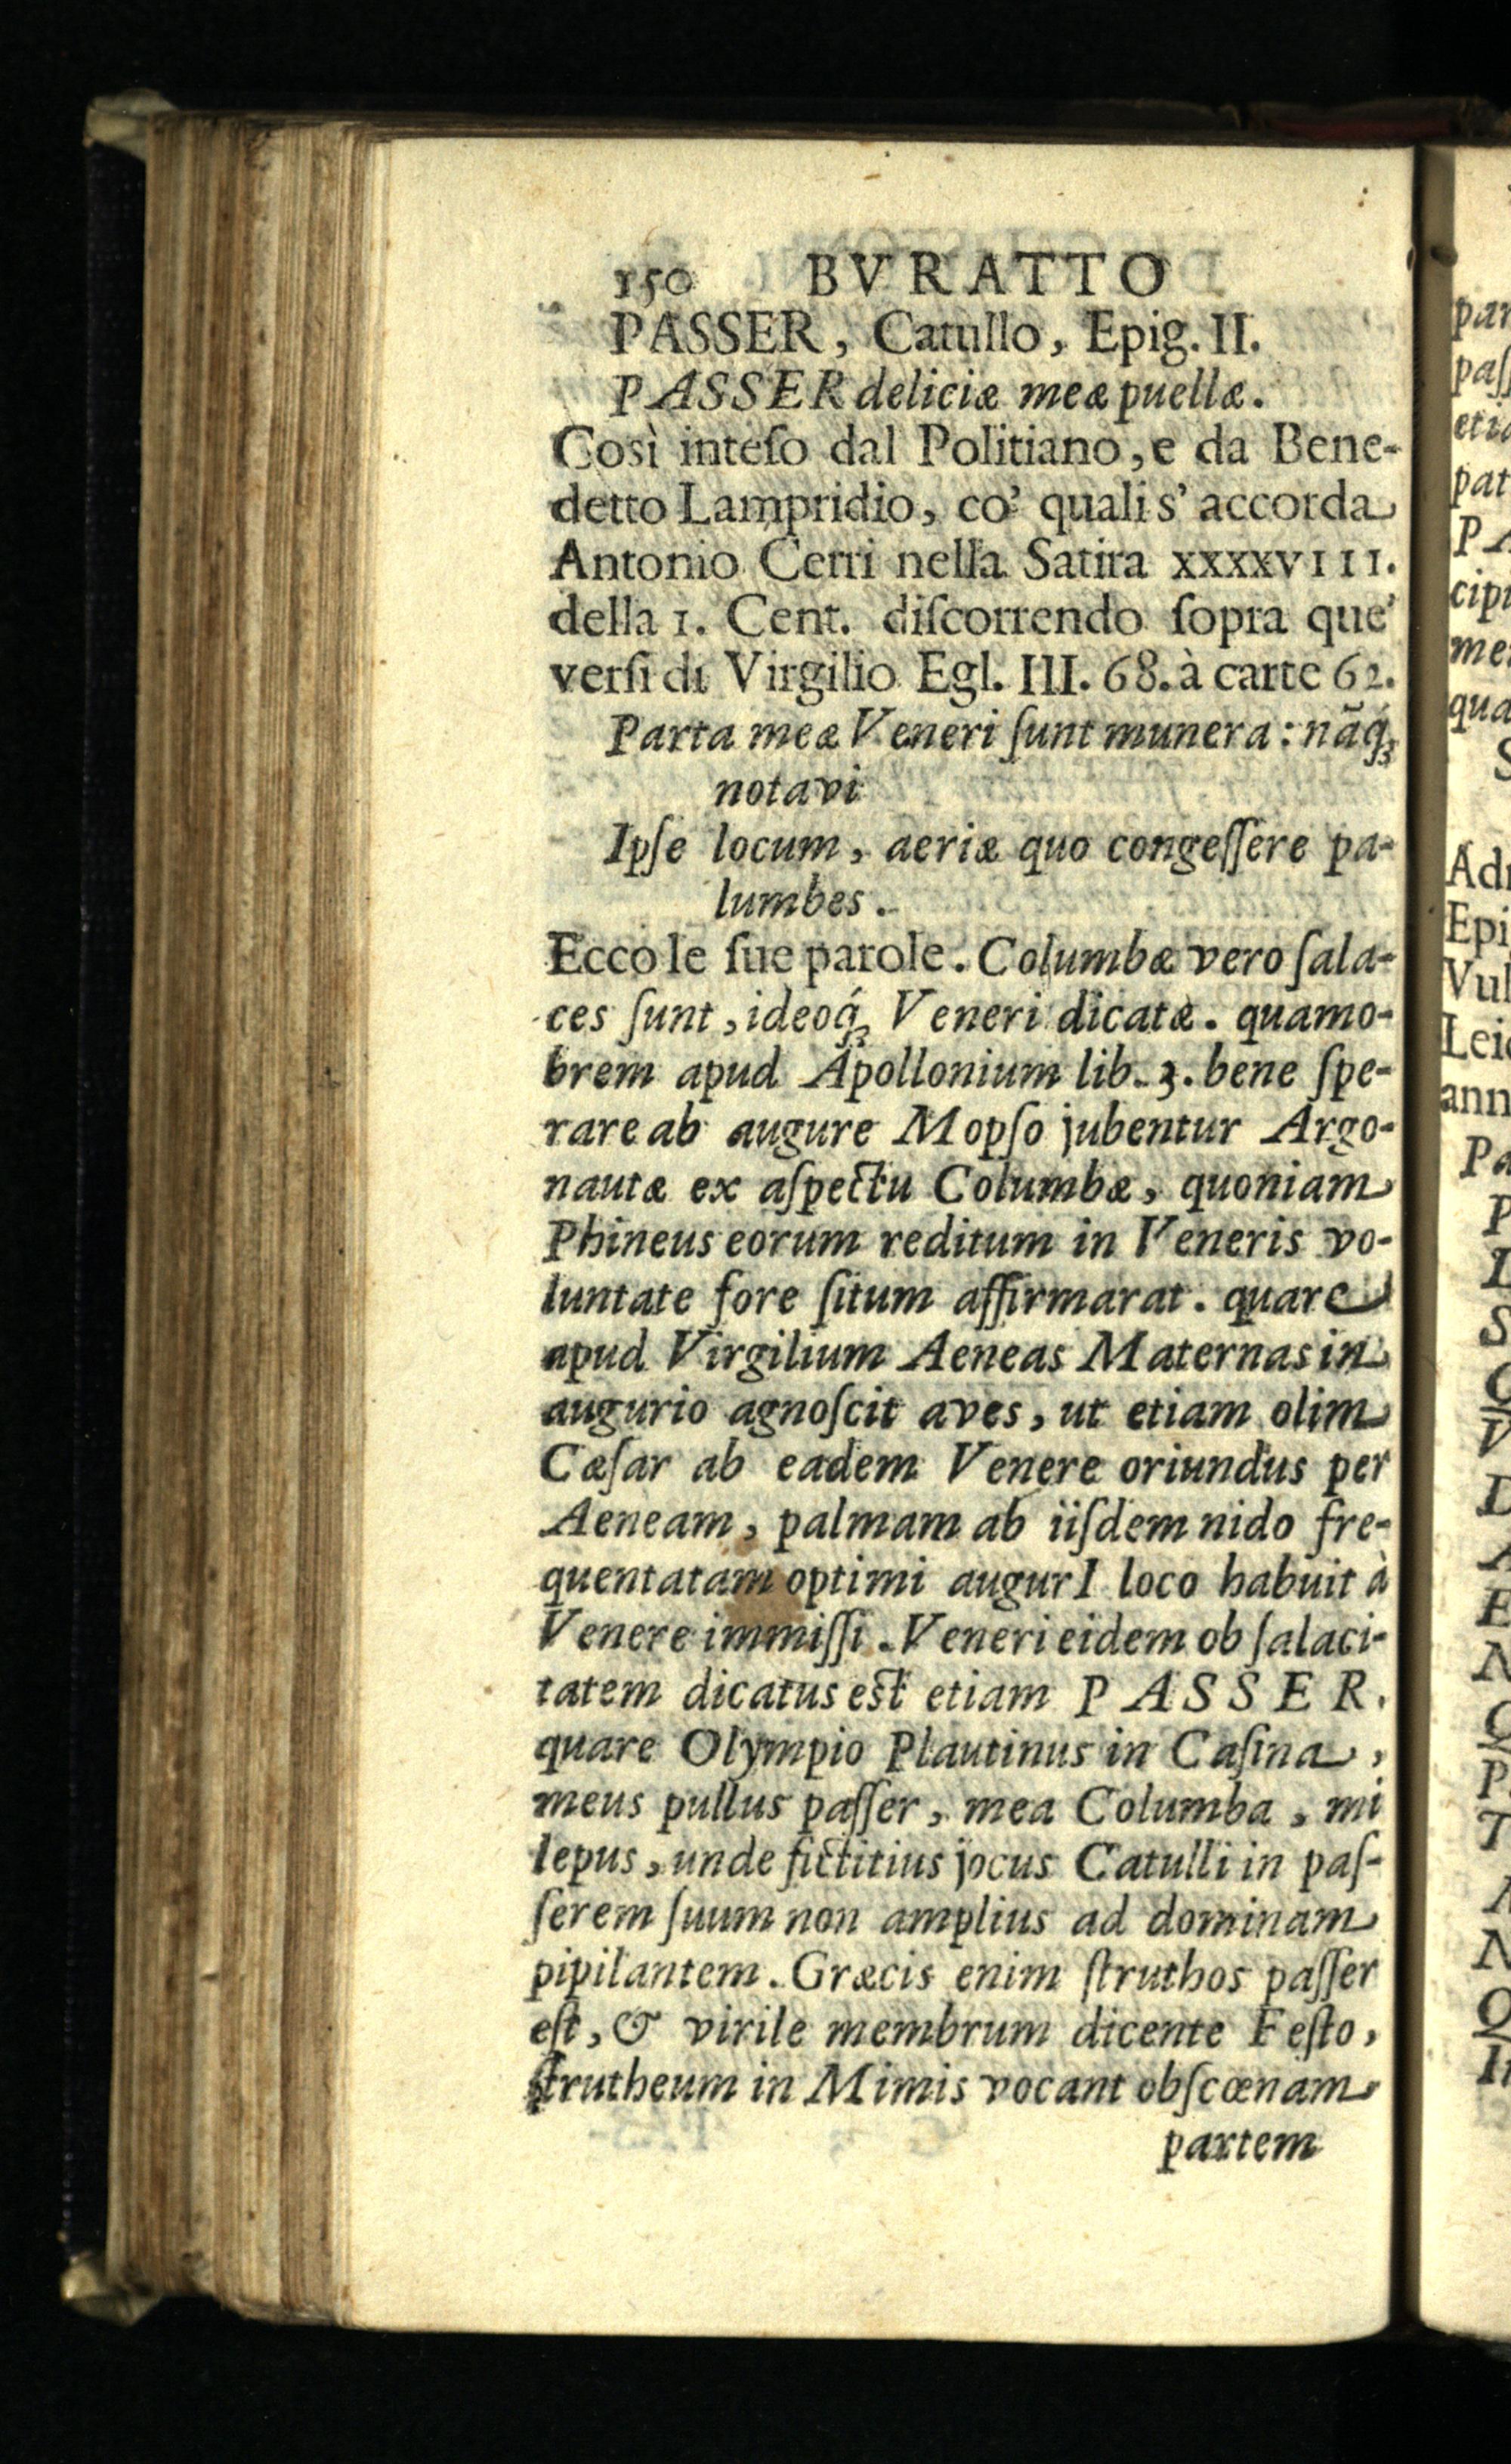 150 BVRATTO
PASSER, Catullo, Epig. II.
PASSER deliciæ meæ puellæ.
Così inteſo dal Politiano, e da Bene-
detto Lampridio, co' quali s' accorda
Antonio Cerri nella Satira xxxxvIII.
della 1. Cent. diſcorrendo ſopra que'
verſi di Virgilio Egl. III. 68. à carte 62.
Parta meæ Veneri ſunt munera: nāq́;
notavi
Ipſe locum, aeriæ quo congeſſere pa-
lumbes.
Ecco le ſue parole. Columbæ vero ſala-
ces ſunt, ideoq́; Veneri dicatæ. quamo-
brem apud Apollonium lib. 3. bene ſpe-
rare ab augure Mopſo jubentur Argo-
nautæ ex aſpectu Columbæ, quoniam
Phineus eorum reditum in Veneris vo-
luntate fore ſitum affirmarat. quare
apud Virgilium Aeneas Maternas in
augurio agnoſcit aves, ut etiam olim
Cæſar ab eadem Venere oriundus per
Aeneam, palmam ab iiſdem nido fre-
quentatam optimi augurI loco habuit à
Venere immiſſi. Veneri eidem ob ſalaci-
tatem dicatus est etiam PASSER.
quare Olympio Plautinus in Caſina,
meus pullus paſſer, mea Columba, mi
lepus, unde fictitius jocus Catulli in paſ-
ſerem ſuum non amplius ad dominam
pipilantem. Græcis enim ſtruthos paſſer
eſt, & virile membrum dicente Feſto,
ſtrutheum in Mimis vocant obſcœnam
partem